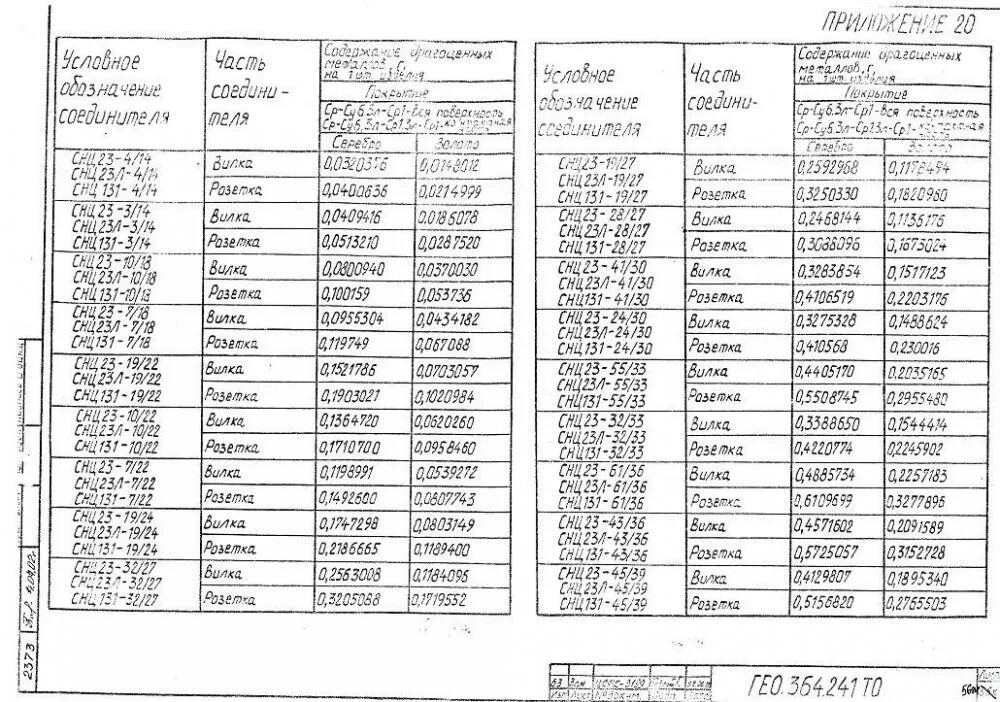 ПРИЛОЖЕНИЕ 20
Условное обозначение соединителя
Часть соедини-теля
Содержание драгоценных металлов, г, на 1 шт. изделия
Покрытие
Ср-Су6.Зл-Ср1-Вся поверхность
Ср-Су6.Зл-Ср1.Зл-Ср1-контактная
Серебро Золото
СНЦ23-4/14 Вилка 0,0320376 0,0148012
СНЦ23Л-4/14
СНЦ131-4/14 Розетка 0,0400636 0,0214999
СНЦ23-3/14 Вилка 0,0409416 0,0186078
СНЦ23Л-3/14
СНЦ131-3/14 Розетка 0,0513210 0,0287520
СНЦ23-10/18 Вилка 0,0800940 0,0370030
СНЦ23Л-10/18
СНЦ131-10/18 Розетка 0,100159 0,053736
СНЦ23-7/18 Вилка 0,0955304 0,0434182
СНЦ23Л-7/18
СНЦ131-7/18 Розетка 0,119749 0,067088
СНЦ23-19/22 Вилка 0,1521786 0,0703057
СНЦ23Л-19/22
СНЦ131-19/22 Розетка 0,1903021 0,1020984
СНЦ23-10/22 Вилка 0,1364720 0,0620260
СНЦ23Л-10/22
СНЦ131-10/22 Розетка 0,1710700 0,0958460
СНЦ23-7/22 Вилка 0,1198991 0,0539272
СНЦ23Л-7/22
СНЦ131-7/22 Розетка 0,1492600 0,0807743
СНЦ23-19/24 Вилка 0,1747298 0,0803149
СНЦ23Л-19/24
СНЦ131-19/24 Розетка 0,2186665 0,1189400
СНЦ23-32/27 Вилка 0,2563008 0,1184096
СНЦ23Л-32/27
СНЦ131-32/27 Розетка 0,3205088 0,1719552
Условное обозначение соединителя
Часть соедини-теля
Содержание драгоценных металлов, г, на 1 шт. изделия
Покрытие
Ср-Су6.Зл-Ср1-Вся поверхность
Ср-Су6.Зл-Ср1.Зл-Ср1-контактная
Серебро Золото
СНЦ23-19/27 Вилка 0,2592968
СНЦ23Л-19/27
СНЦ131-19/27 Розетка 0,3250330 0,1820960
СНЦ23-28/27 Вилка 0,2468144 0,1136176
СНЦ23Л-28/27
СНЦ131-28/27 Розетка 0,3088096 0,1673024
СНЦ23-41/30 Вилка 0,3283854 0,1517123
СНЦ23Л-41/30
СНЦ131-41/30 Розетка 0,4106519 0,2203176
СНЦ23-24/30 Вилка 0,3275328 0,1488624
СНЦ23Л-24/30
СНЦ131-24/30 Розетка 0,410568 0,230016
СНЦ23-55/33 Вилка 0,4405170 0,2035165
СНЦ23Л-55/33
СНЦ131-55/33 Розетка 0,5508745 0,2955480
СНЦ23-32/33 Вилка 0,3388650 0,1544414
СНЦ23Л-32/33
СНЦ131-32/33 Розетка 0,4220774 0,2245902
СНЦ23-61/36 Вилка 0,4885734 0,2257183
СНЦ23Л-61/36
СНЦ131-61/36 Розетка 0,6109699 0,3277896
СНЦ23-43/36 Вилка 0,4571602 0,2091589
СНЦ23Л-43/36
СНЦ131-43/36 Розетка 0,5725057 0,3152728
СНЦ23-45/39 Вилка 0,4129807 0,1895340
СНЦ23Л-45/39
СНЦ131-45/39 Розетка 0,5156820 0,2765503
2373
ГЕО.364.241 ТО